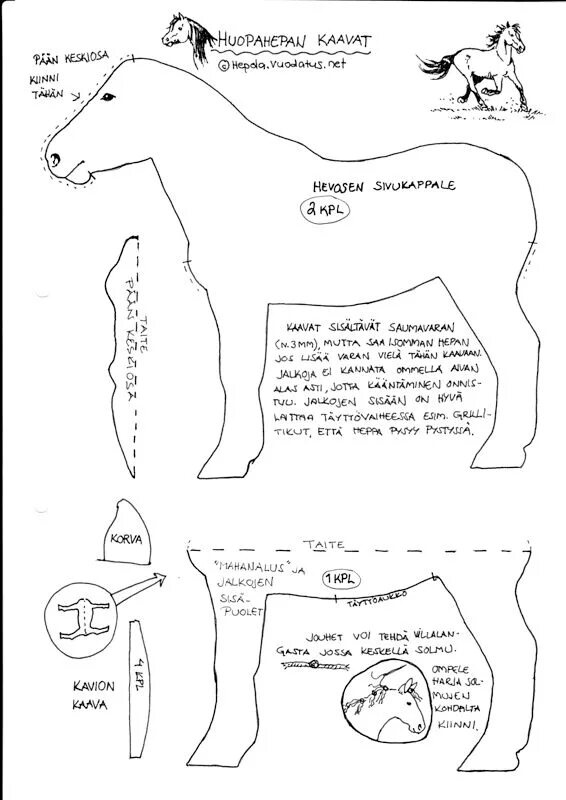 HUOPAHEPAN KAAVAT
© Hepola.vuodatus.net
PÄÄN KESKIOSA
KIINNI
TÄHÄN
HEVOSEN SIVUKAPPALE
2 KPL
TAITE
PÄÄN KESKIOSA
KAAVAT SISÄLTÄVÄT SAUMAVARAN
(N. 3 MM), MUTTA SAA ISOMMAN HEPAN
JOS LISÄÄ VARAN VIELÄ TÄHÄN KAAVAAN.
JALKOJA EI KANNATA OMMELLA AIVAN
ALAS ASTI, JOTTA KÄÄNTÄMINEN ONNIS-
TUU. JALKOJEN SISÄÄN ON HYVÄ
LAITTAA TÄYTTÖVAIHEESSA ESIM. GRILLI-
TIKUT, ETTÄ HEPPA PYSYY PYSTYSSÄ.
KORVA
TAITE
"MAHANALUS" JA
JALKOJEN
SISÄ-
PUOLET
1 KPL
TÄYTTÖAUKKO
4 KPL
KAVION
KAAVA
JOUHET VOI TEHDÄ VILLALAN-
GASTA JOSSA KESKELLÄ SOLMU.
OMPELE
HARJA SOL-
MUJEN
KOHDALTA
KIINNI.